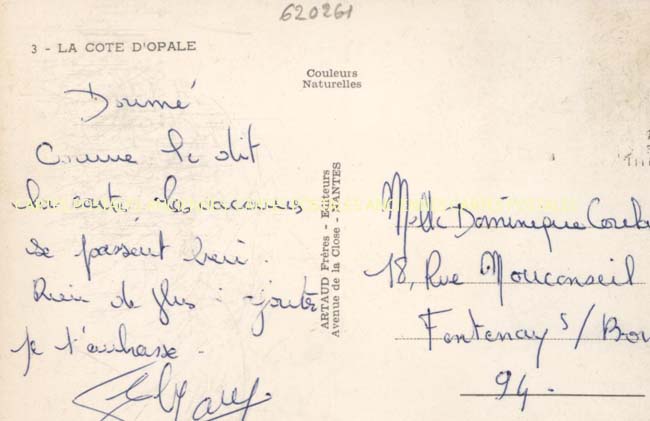 620261
3 - LA COTE D'OPALE
Couleurs
Naturelles
Doumé
Comme le dit
la carte, les vacances
se passent bien.
Rien de plus à ajouter
je t'embrasse.
ARTAUD Frères - Editeurs
Avenue de la Close - NANTES
Melle Dominique
18, Rue Mouconseil
Fontenay s/
94.